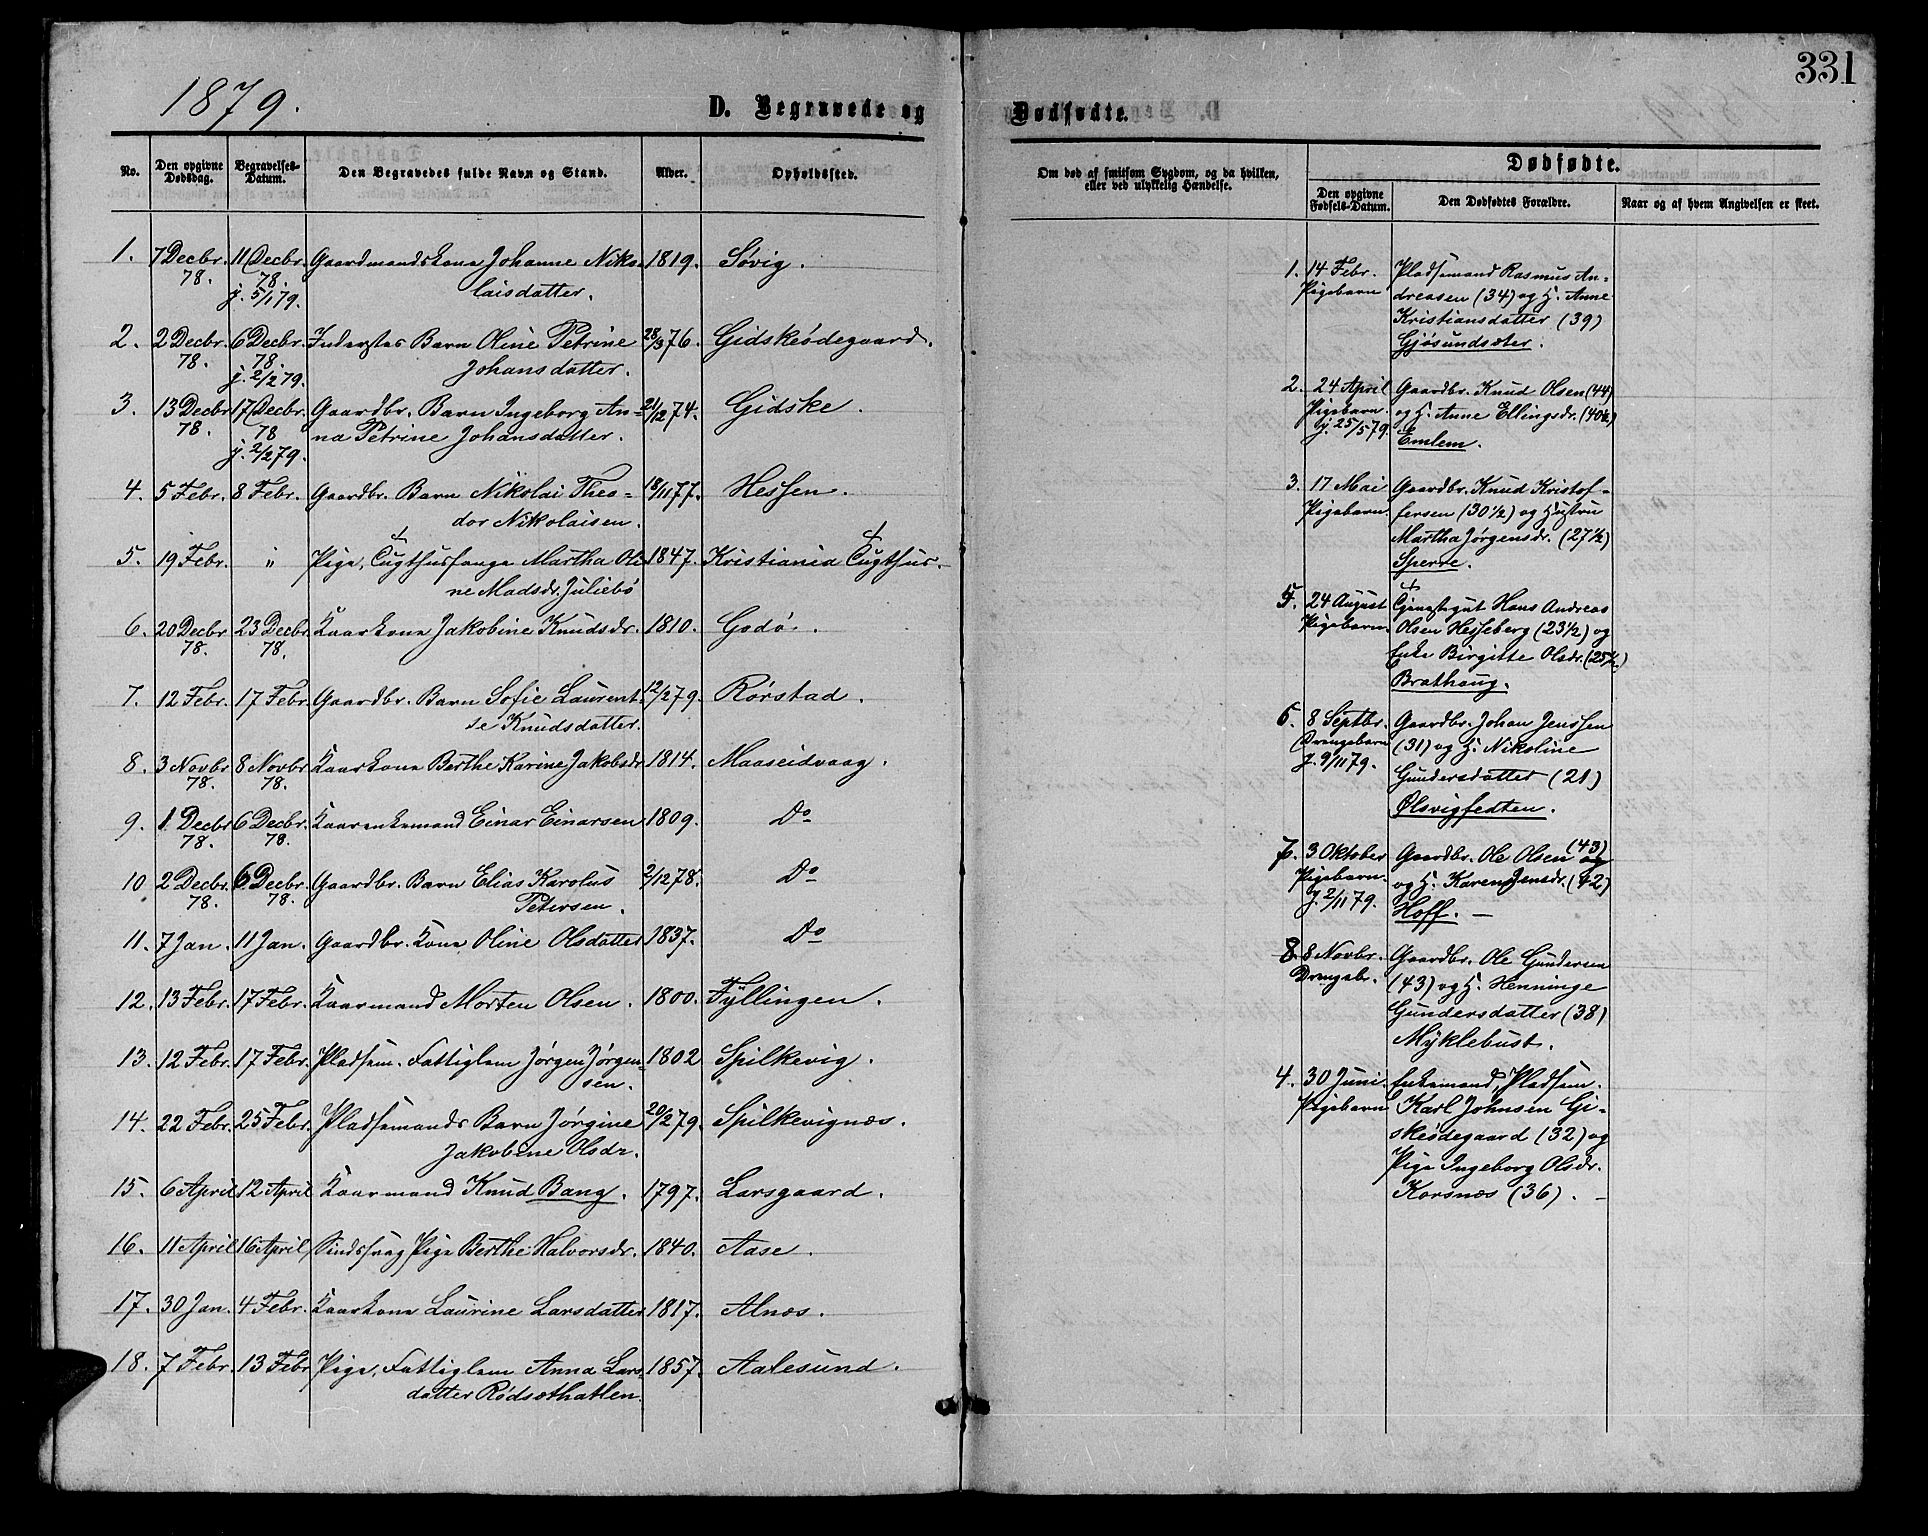 1879.
331
D. Begravede og Dødfødte.
No.
Den opgivne Dødsdag.
Begravelses-Datum.
Den Begravedes fulde Navn og Stand.
Alder.
Opholdssted.
Om død af smitsom Sygdom, og da hvilken, eller ved ulykkelig Hændelse.
Dødfødte.
Den opgivne Fødsels-Datum.
Den Dødfødtes Forældre.
Naar og af hvem Angivelsen er skeet.
1. 7 Decbr. 11 Decbr. Gaardmandskone Johanne Niko- 1819. Søvig.
78. 78. laisdatter.
j. 5/1 79.
2. 2 Decbr. 6 Decbr. Inderstes Barn Oline Petrine 28/3 76. Gidskeødegaard.
78. 78. Johansdatter.
j. 2/2 79.
3. 13 Decbr 17 Decbr. Gaardbr. Barn Ingeborg An- 21/12 74. Gidske.
78. 78 na Petrine Johansdatter.
j. 2/2 79.
4. 5 Febr. 8 Febr. Gaardbr. Barn Nikolai Theo- 18/11 77. Hessen.
dor Nikolaisen.
5. 19 Febr. " Pige, Tugthusfange Martha Oli 1847. Kristiania Tugthus.
ne Madsdr. Juliebø
6. 20 Decbr 23 Decbr. Kaarkone Jakobine Knudsdr. 1810. Godø.
78. 78.
7. 12 Febr. 17 Febr. Gaardbr. Barn Sofie Laurent- 12/2 79. Rørstad.
se Knudsdatter.
8. 3 Novbr 8 Novbr Kaarkone Berthe Karine Jakobsdr 1814. Maaseidvaag.
78. 78.
9. 1 Decbr 6 Decbr. Kaarenkemand Einar Einarsen 1809. Do
78. 78.
10. 2 Decbr. 6 Decbr. Gaardbr. Barn Elias Karolus 2/12 78. Do
78. 78. Petersen.
11. 7 Jan. 11 Jan. Gaardbr. Kone Oline Olsdatter 1837. Do
12. 13 Febr. 17 Febr. Kaarmand Morten Olsen. 1800. Fyllingen.
13. 12 Febr. 17 Febr. Pladsem. Fattiglem Jørgen Jørgen- 1802 Spilkevig.
sen.
14. 22 Febr. 25 Febr. Pladsemands Barn Jørgine 20/2 79. Spilkevignæs.
Jakobine Olsdr.
15. 6 April 12 April Kaarmand Knud Bang. 1797. Larsgaard.
16. 11 April 16 April Sindssvag Pige Berthe Halvorsdr. 1840. Aase.
17. 30 Jan. 4 Febr. Kaarkone Laurine Larsdatter 1817. Alnæs.
18. 7 Febr. 13 Febr Pige, Fattiglem Anna Lars- 1857. Aalesund.
datter Rødsethatlen.
1. 14 Febr. Pladsemand Rasmus An-
Pigebarn dreasen (34) og H. Anne
Kristiansdatter (39)
Gjøsundsæter.
2. 24 April Gaardbr. Knud Olsen (44)
Pigebarn. og H. Anne Ellingsdr. (40½)
j. 25/5 79. Emlem.
3. 17 Mai Gaardbr. Knud Kristof-
Pigebarn. fersen (30½) og Hustru
Martha Jørgensdr. (27½)
Sperre.
5. 24 August Tjenestegut Hans Andreas
Pigebarn. Olsen Hesseberg (23½) og
Enke Birgitte Olsdr. (25½)
Brathaug.
6. 8 Septbr. Gaardbr. Johan Jenssen
Drengebarn (31) og H. Nikoline
j. 9/11 79. Gundersdatter (21)
Ølsvigfedten.
7. 3 Oktober Gaardbr. Ole Olsen (43) og
Pigebarn. og H. Karen Jensdr. (42)
j. 2/11 79. Hoff. —
8. 8 Novbr. Gaardbr. Ole Gundersen
Drengebr. (43) og H. Henninge
Gundersdatter (38)
Myklebust.
4. 30 Juni. Enkemand, Pladsem.
Pigebarn Karl Johnsen Gi-
skeødegaard (32) og
Pige Ingeborg Olsdr.
Korsnæs (36). —